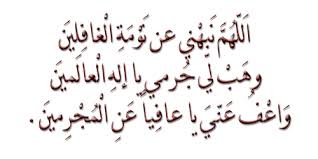 اَللّهُمَّ نَبِّهْنِي عَن نَوْمَةِ الْغافِلِينَ
وَهَبْ لِي جُرمي يا إِلهِ الْعالَمينَ
وَاعْفُ عَنّيَ يا عافِياً عَنِ الْمُجْرِمينَ .